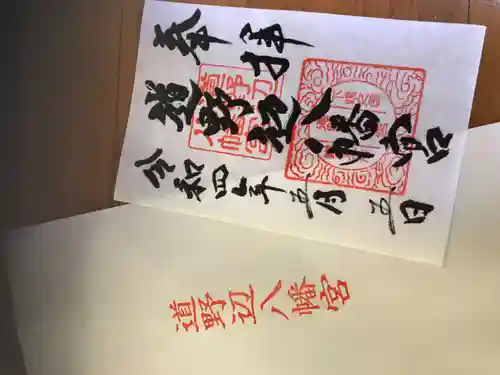 奉拝
道野辺八幡宮
令和四年五月五日
道野辺八幡宮